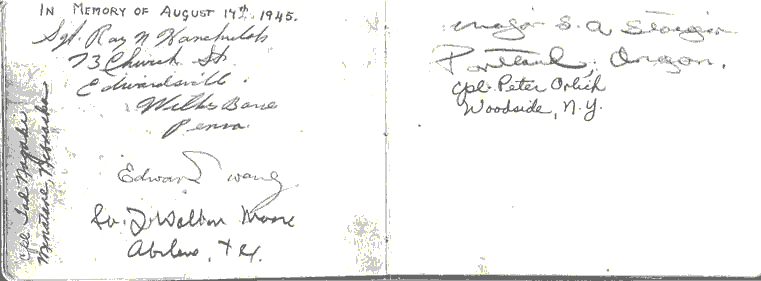 IN MEMORY OF AUGUST 17th 1945.
Sgt. Ray N
73 Church St
Edwardsville.
Wilks Barre
Penna
Edward
Walton Moore
Abilene, Tex.
Cpl.
Nebraska
Major S. A
Portland, Oregon.
Cpl. Peter Orlich
Woodside, N.Y.